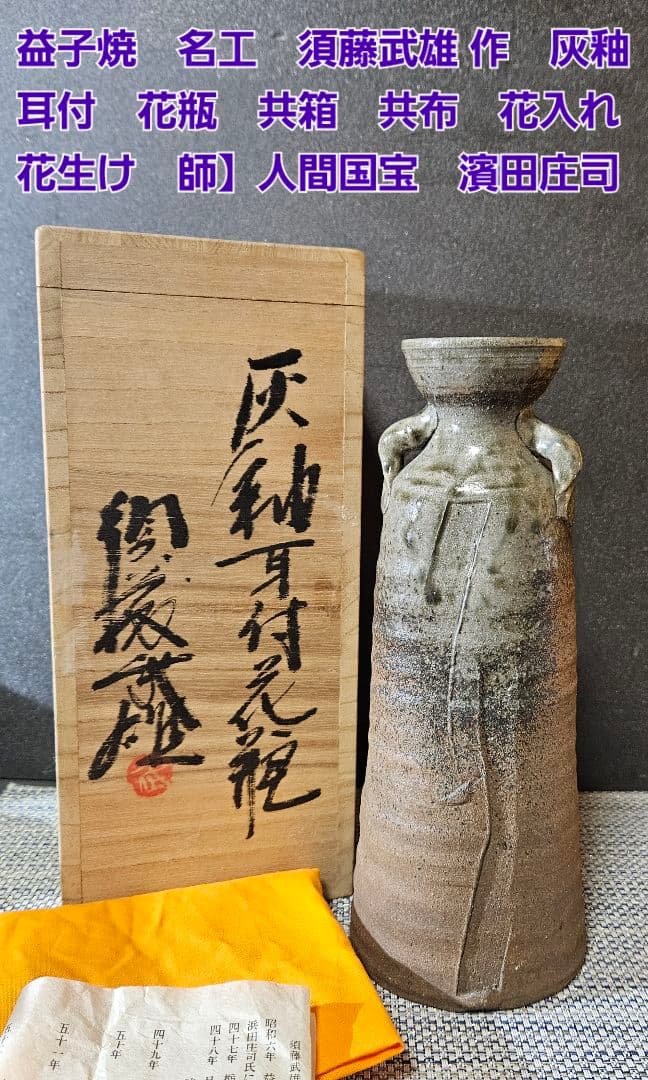 益子焼　名工　須藤武雄 作　灰釉
耳付　花瓶　共箱　共布　花入れ
花生け　師】人間国宝　濱田庄司
灰釉耳付花瓶
須藤武雄
須藤武雄
昭和六年　益
浜田庄司氏に
四十七年
四十八年
四十九年
五十年
五十一年